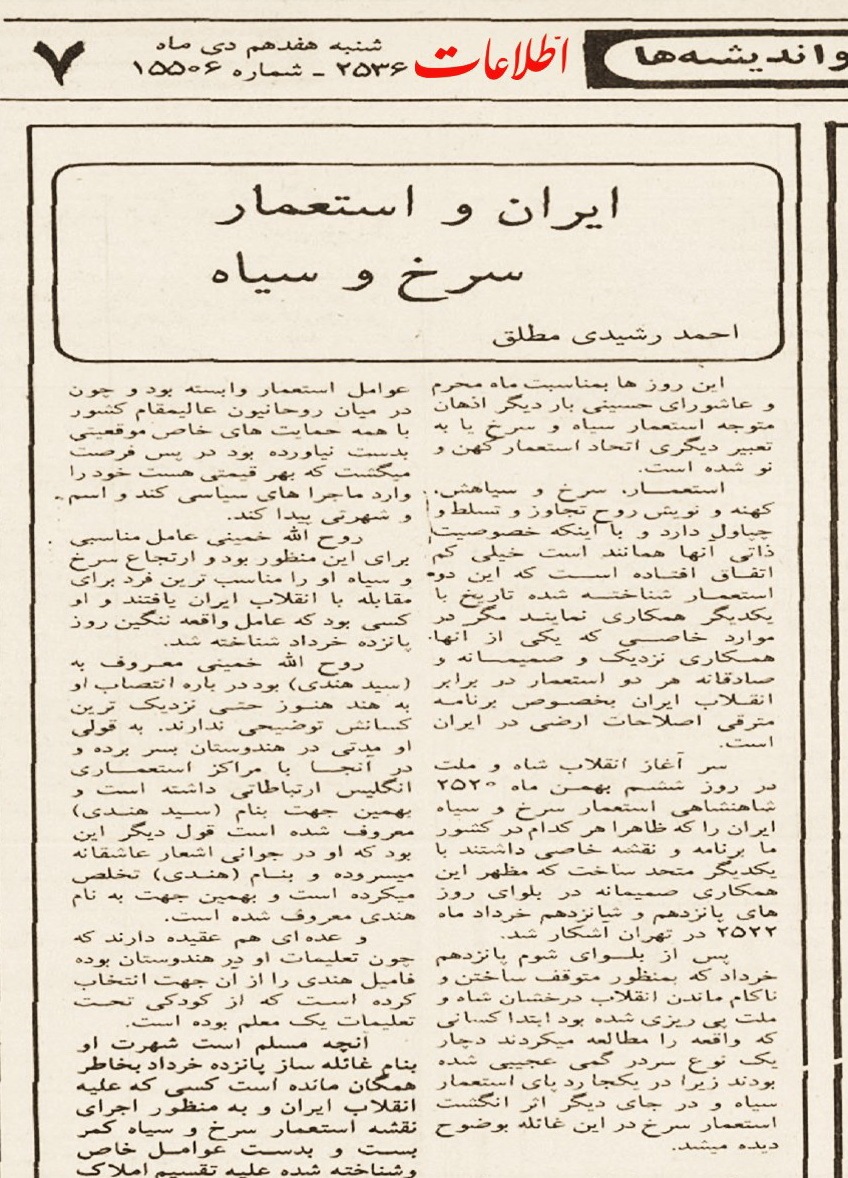 و اندیشه‌ها
اطلاعات
شنبه هفدهم دی ماه
۲۵۳۶ ـ شماره ۱۵۵۰۶
۷
ایران و استعمار
سرخ و سیاه
احمد رشیدی مطلق
این روز ها بمناسبت ماه محرم
و عاشورای حسینی بار دیگر اذهان
متوجه استعمار سیاه و سرخ یا به
تعبیر دیگری اتحاد استعمار کهن و
نو شده است.
استعمـــار، سرخ و سیاهش،
کهنه و نویش روح تجاوز و تسلط و
چپاول دارد و با اینکه خصوصیت
ذاتی آنها همانند است خیلی کم
اتفـاق افتـاده اسـت که این دو
استعمـار شناختـه شده تاریخ با
یکدیگر همکاری نماینـد مگر در
موارد خاصـی که یکی از آنها،
همـکاری نزدیک و صمیمـانه و
صادقانه هر دو استعمار در برابر
انقـلاب ایران بخصـوص برنامـه
مترقی اصلاحات ارضی در ایران
است.
سر آغاز انقلاب شاه و ملت
در روز ششـم بهمـن ماه ۲۵۲۰
شاهنشاهی استعمار سرخ و سیاه
ایران را که ظاهرا هر کدام در کشور
ما برنامه و نقشه خاصی داشتند با
یکدیگر متحد ساخت که مظهر این
همکاری صمیمانه در بلوای روز
های پانزدهم و شانزدهم خرداد ماه
۲۵۲۲ در تهران آشکار شد.
پس از بلـوای شوم پانزدهم
خرداد که بمنظور متوقف ساختن و
ناکام ماندن انقلاب درخشان شاه و
ملت پی ریزی شده بود ابتدا کسانی
که واقعه را مطالعه میکردند دچار
یک نوع سردر گمی عجیبی شده
بودند زیرا در یکجا رد پای استعمار
سیاه و در جای دیگر اثر انگشت
استعمار سرخ در این غائله بوضوح
دیده میشد.
عوامل استعمار وابسته بود و چون
در میان روحانیون عالیمقام کشور
با همه حمایت های خاص موقعیتی
بدست نیاورده بود در پس فرصت
میگشت که بهر قیمتی هست خود را
وارد ماجرا های سیاسی کند و اسم
و شهرتی پیدا کند.
روح الله خمینی عامل مناسبی
برای این منظور بود و ارتجاع سرخ
و سیاه او را مناسب ترین فرد برای
مقابله با انقلاب ایران یافتند و او
کسی بود که عامل واقعه ننگین روز
پانزده خرداد شناخته شد.
روح الله خمینی معـروف به
(سید هندی) بود در باره انتصاب او
به هند هنـوز حتـی نزدیک ترین
کسانش توضیحی ندارند. به قولی
او مدتی در هندوستان بسر برده و
در آنجـا با مراکز استعمـاری
انگلیس ارتباطاتی داشته است و
بهمین جهت بنام (سـید هنـدی)
معروف شده است قول دیگر این
بود که او در جوانی اشعار عاشقانه
میسروده و بنـام (هنـدی) تخلص
میکرده است و بهمین جهت به نام
هندی معروف شده است.
و عده ای هم عقیده دارند که
چون تعلیمات او در هندوستان بوده
فامیل هندی را از آن جهت انتخاب
کرده است که از کودکی تحت
تعلیمات یک معلم بوده است.
آنچه مسلم است شهرت او
بنام غائله ساز پانزده خرداد بخاطر
همگان مانده است کسی که علیه
انقلاب ایران و به منظور اجرای
نقشه استعمار سرخ و سیاه کمر
بست و بدست عوامـل خاص
وشناخته شده علیه تقسیم املاک